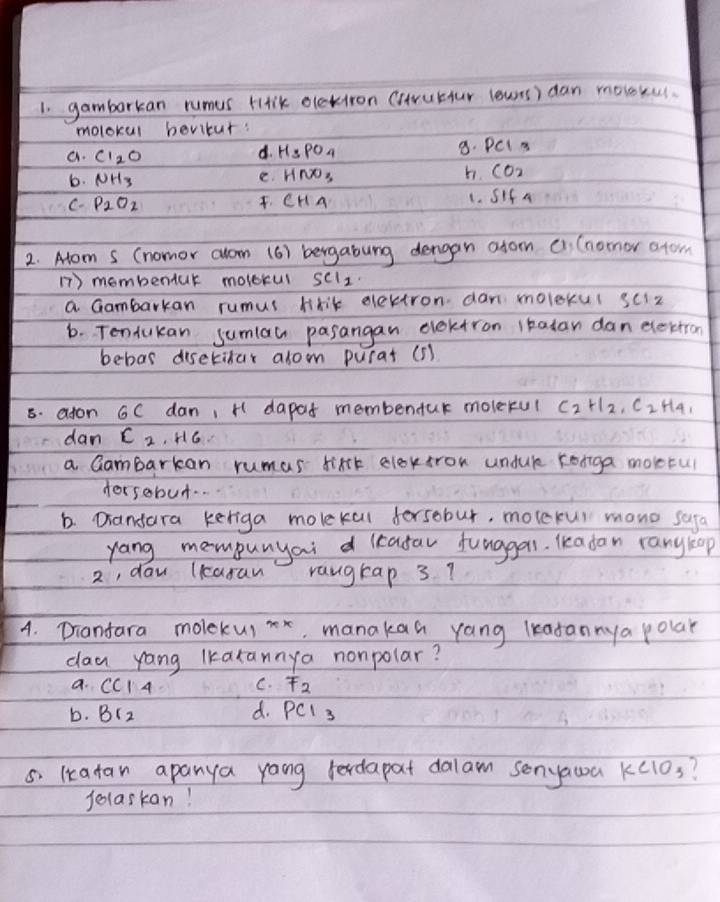 1. gambarkan rumus titik elektron (struktur lewis) dan molekul-
molekul berikut:
a. Cl2O d. H3PO4 g. PCl3
b. NH3 e. HNO3 h. CO2
c. P2O2 f. CH4 i. SIF4
2. Atom S (nomor atom 16) bergabung dengan atom Cl (nomor atom
17) membentuk molekul SCl2.
a. Gambarkan rumus titik elektron dan molekul SCl2
b. Tentukan jumlah pasangan elektron ikatan dan elektron
bebas disekitar atom pusat (s)
3. atom 6C dan 1 H dapat membentuk molekul C2H2, C2H4,
dan C2.H6.
a. Gambarkan rumus titik elektron untuk ketiga molekul
tersebut..
b. Diantara ketiga molekul tersebut. molekul mana saja
yang mempunyai d ikatan tunggal. Ikatan rangkap
2, dan ikatan rangkap 3. ?
4. Diantara molekul xx. manakah yang Ikatannya polar
dan yang Ikatannya nonpolar?
a. CCl4 c. F2
b. Br2 d. PCl3
5. Ikatan apanya yang terdapat dalam senyawa KClO3?
Jelaskan!